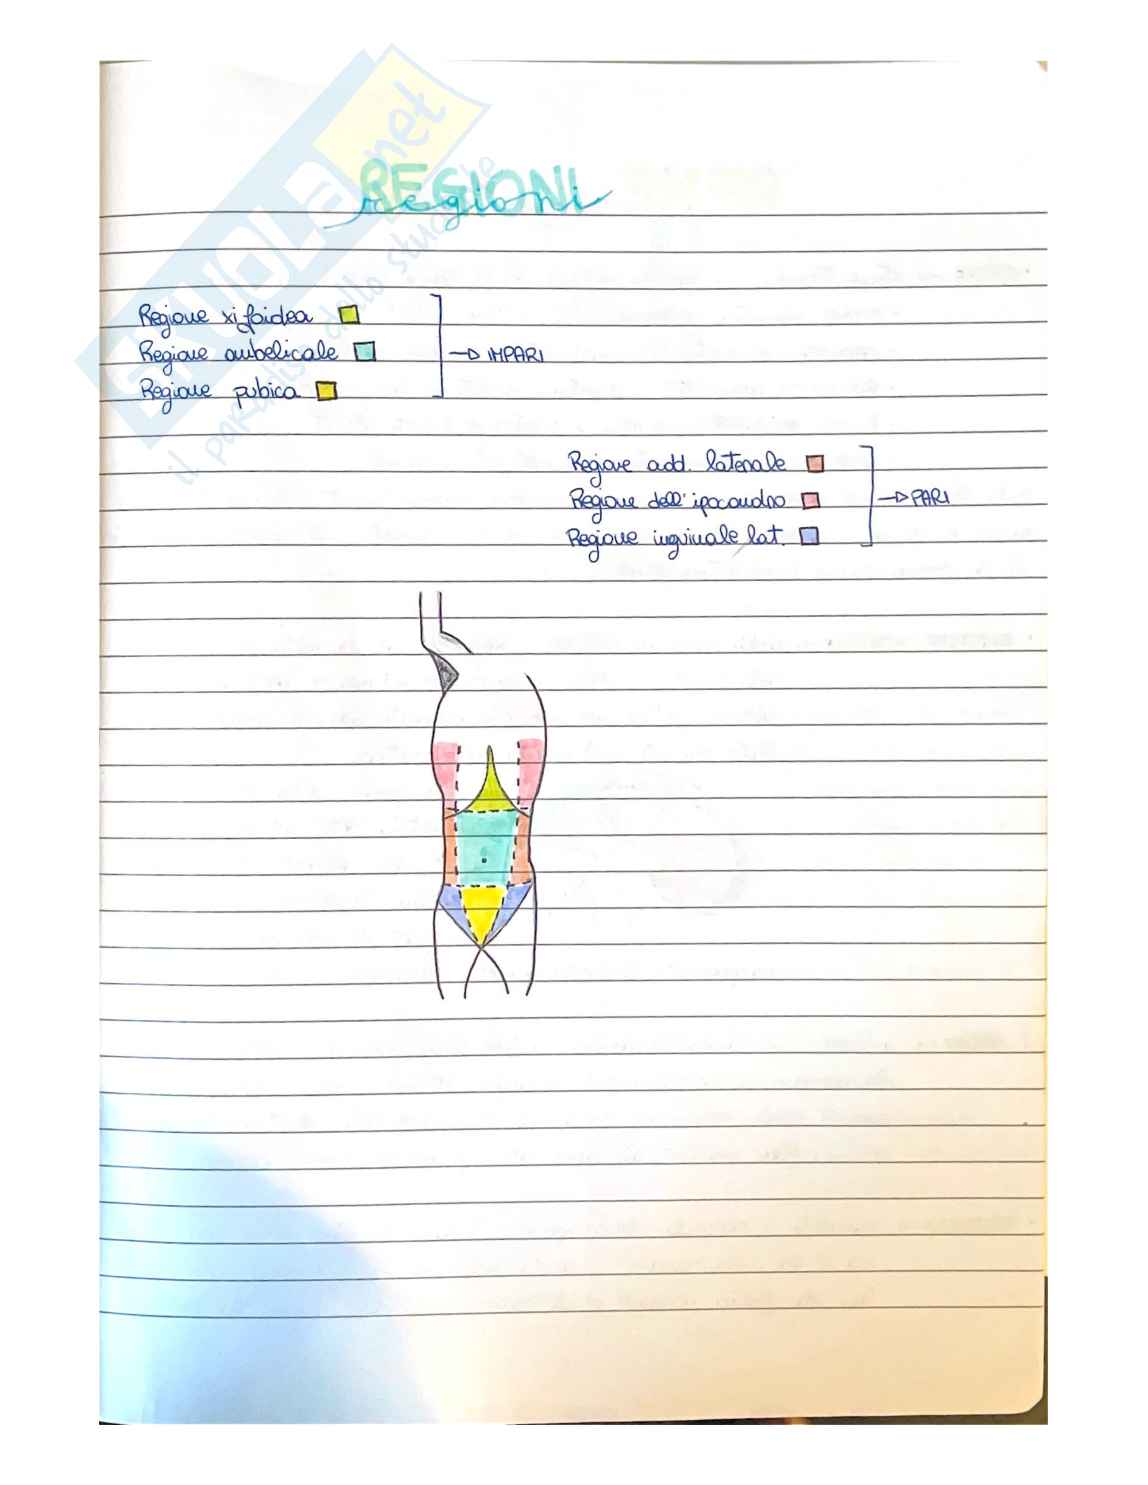 SKUOLA.net
il paradiso dello studente
REGIONI
regioni
Regione xifoidea
Regione ombelicale → IMPARI
Regione pubica
Regione add. laterale
Regione dell'ipocondrio → PARI
Regione inguinale lat.